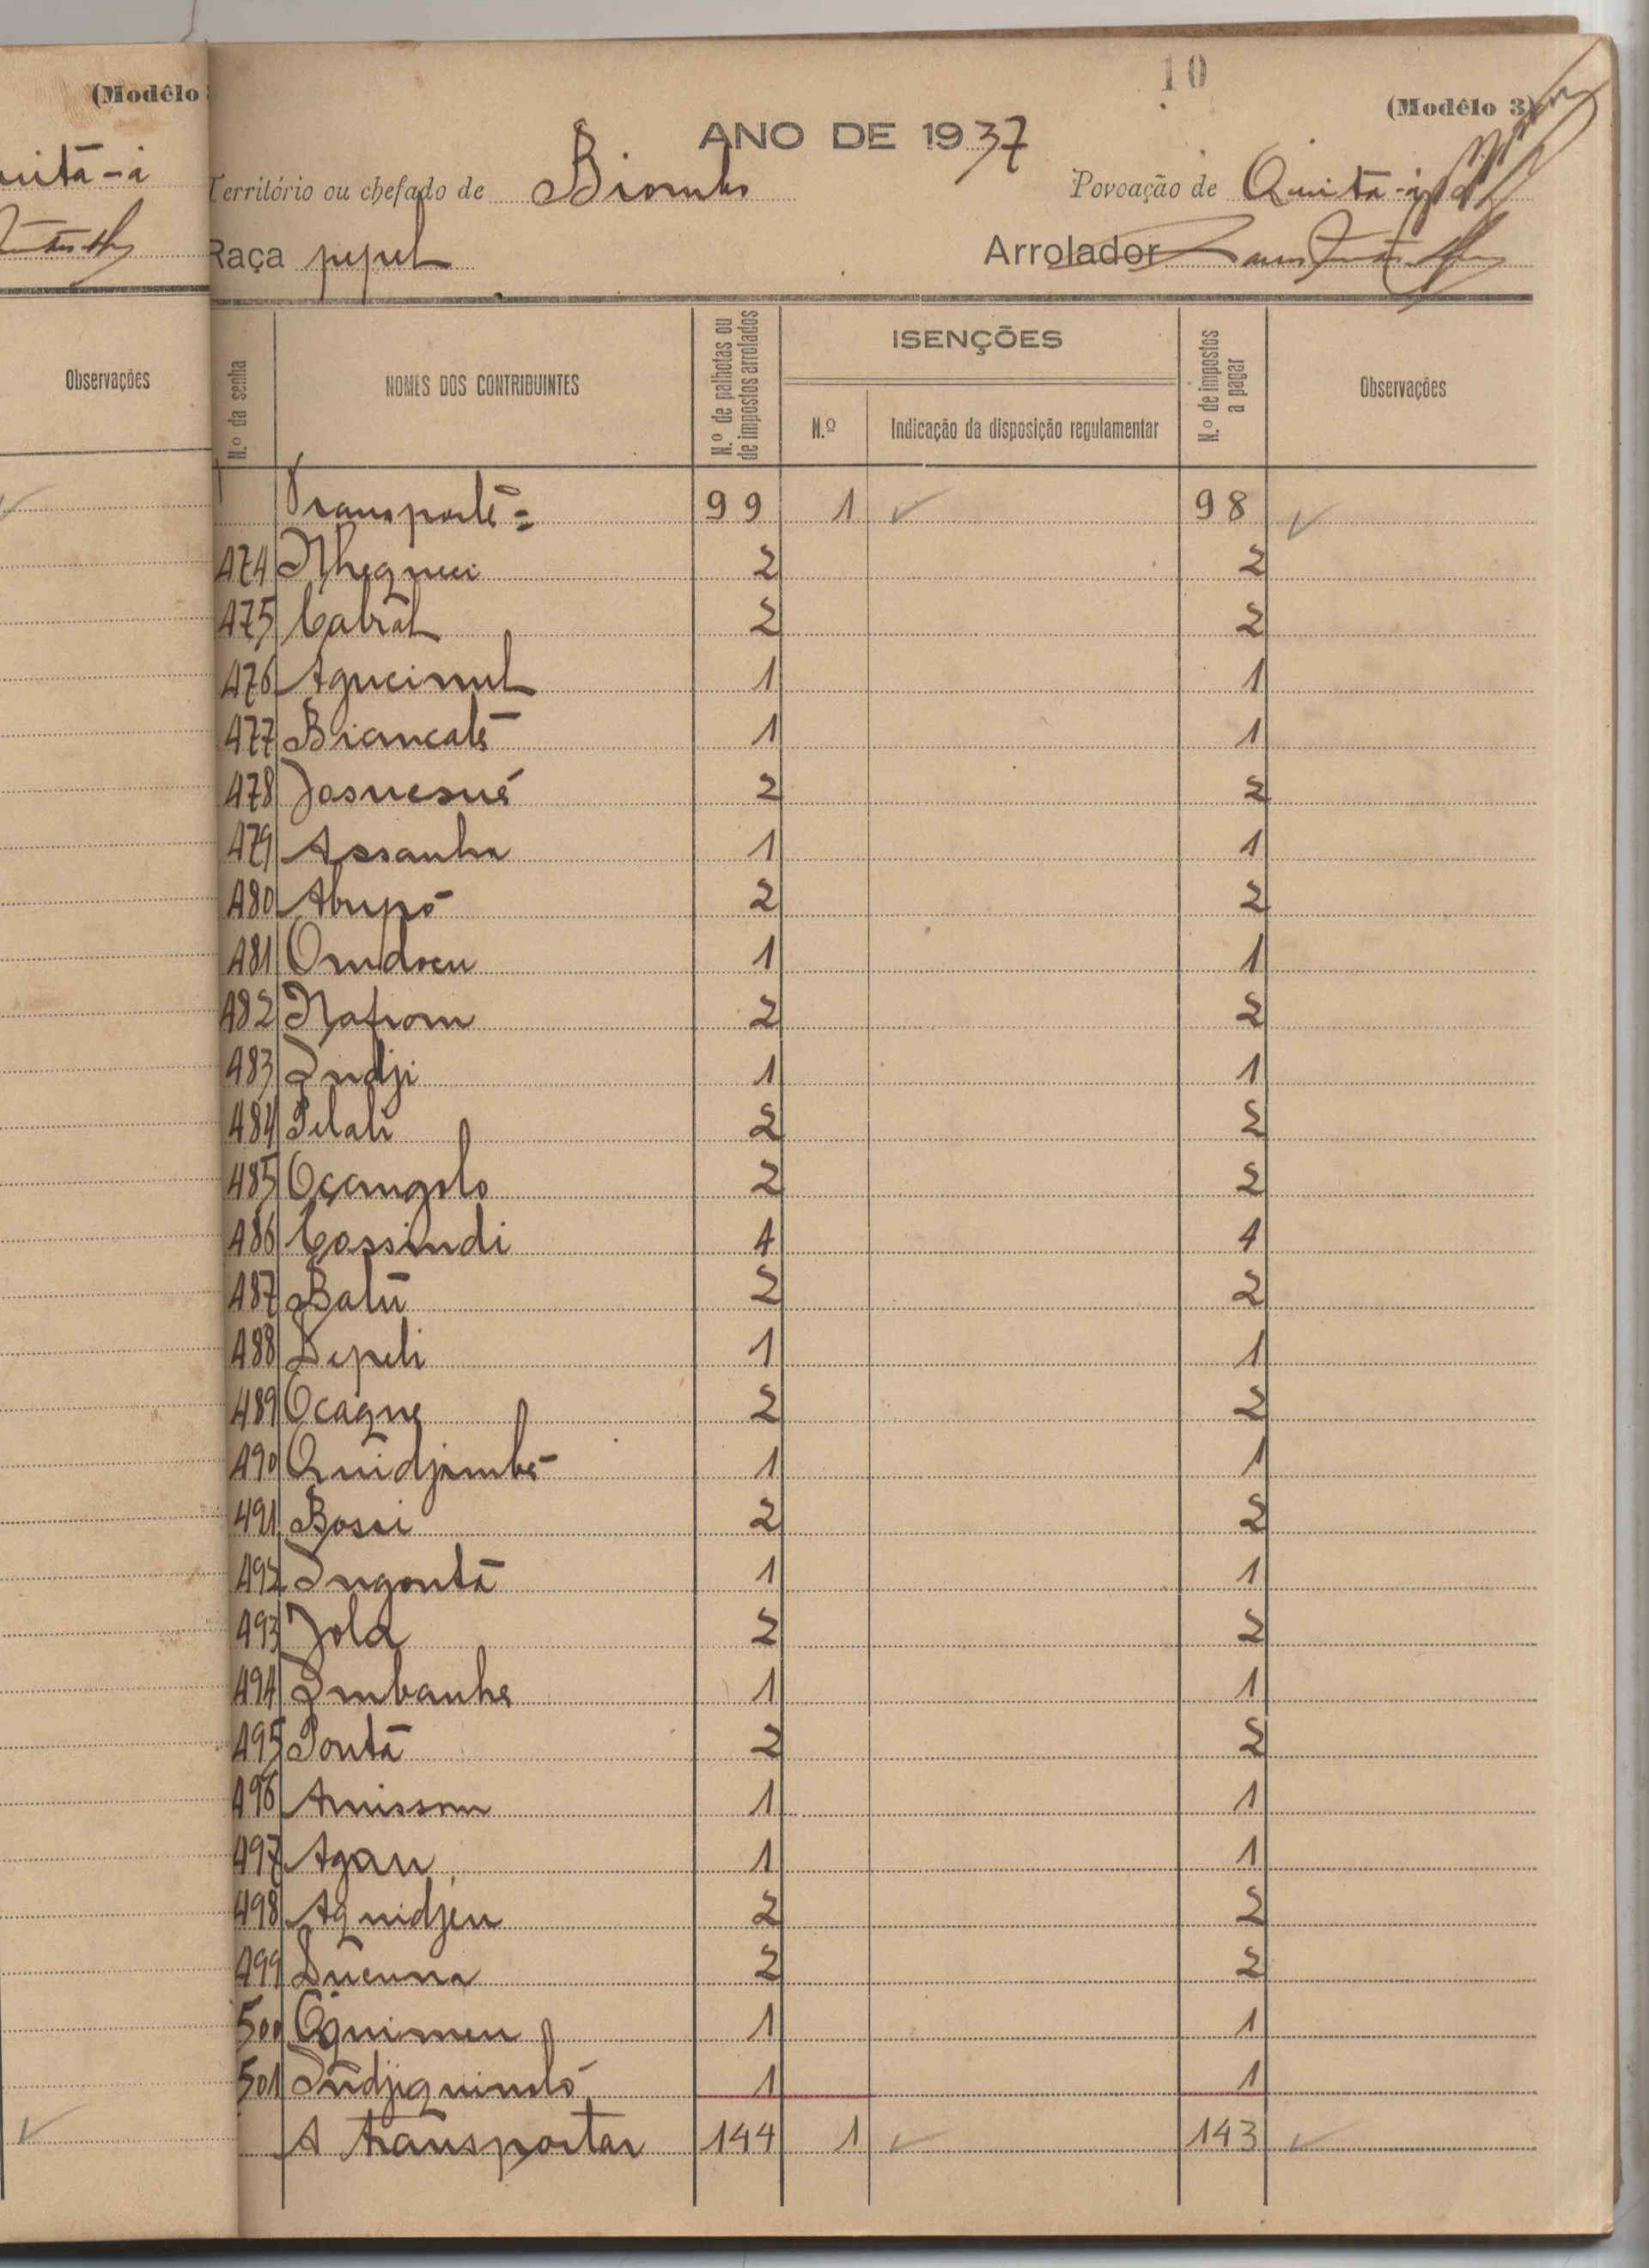 (Modêlo
uitā-i
Observações
10
(Modêlo 3)
ANO DE 1937
Território ou chefado de Biombo Povoação de Quitā-i
Raça pepel Arrolador
N.º da senha NOMES DOS CONTRIBUINTES N.º de palhotas ou de impostos arrolados ISENÇÕES N.º Indicação da disposição regulamentar N.º de impostos a pagar Observações
Transporte = 99 1 ✓ 98 ✓
474 Nhequei 2 2
475 Cabral 2 2
476 Agucimul 1 1
477 Biancatē 1 1
478 Josuesué 2 2
479 Assanha 1 1
480 Abupō 2 2
481 Omdoeu 1 1
482 Nafrom 2 2
483 Indji 1 1
484 Pilali 2 2
485 Oçangolo 2 2
486 Cossindi 4 4
487 Batū 2 2
488 Depeli 1 1
489 Ocaque 2 2
490 Quidjambē 1 1
491 Bossi 2 2
492 Ingontā 1 1
493 Jola 2 2
494 Imbanhe 1 1
495 Pontā 2 2
496 Amissom 1 1
497 Agau 1 1
498 Aquidjeu 2 2
499 Ducuna 2 2
500 Oquimeu 1 1
501 Indjiquimoló 1 1
A transportar 144 1 ✓ 143 ✓